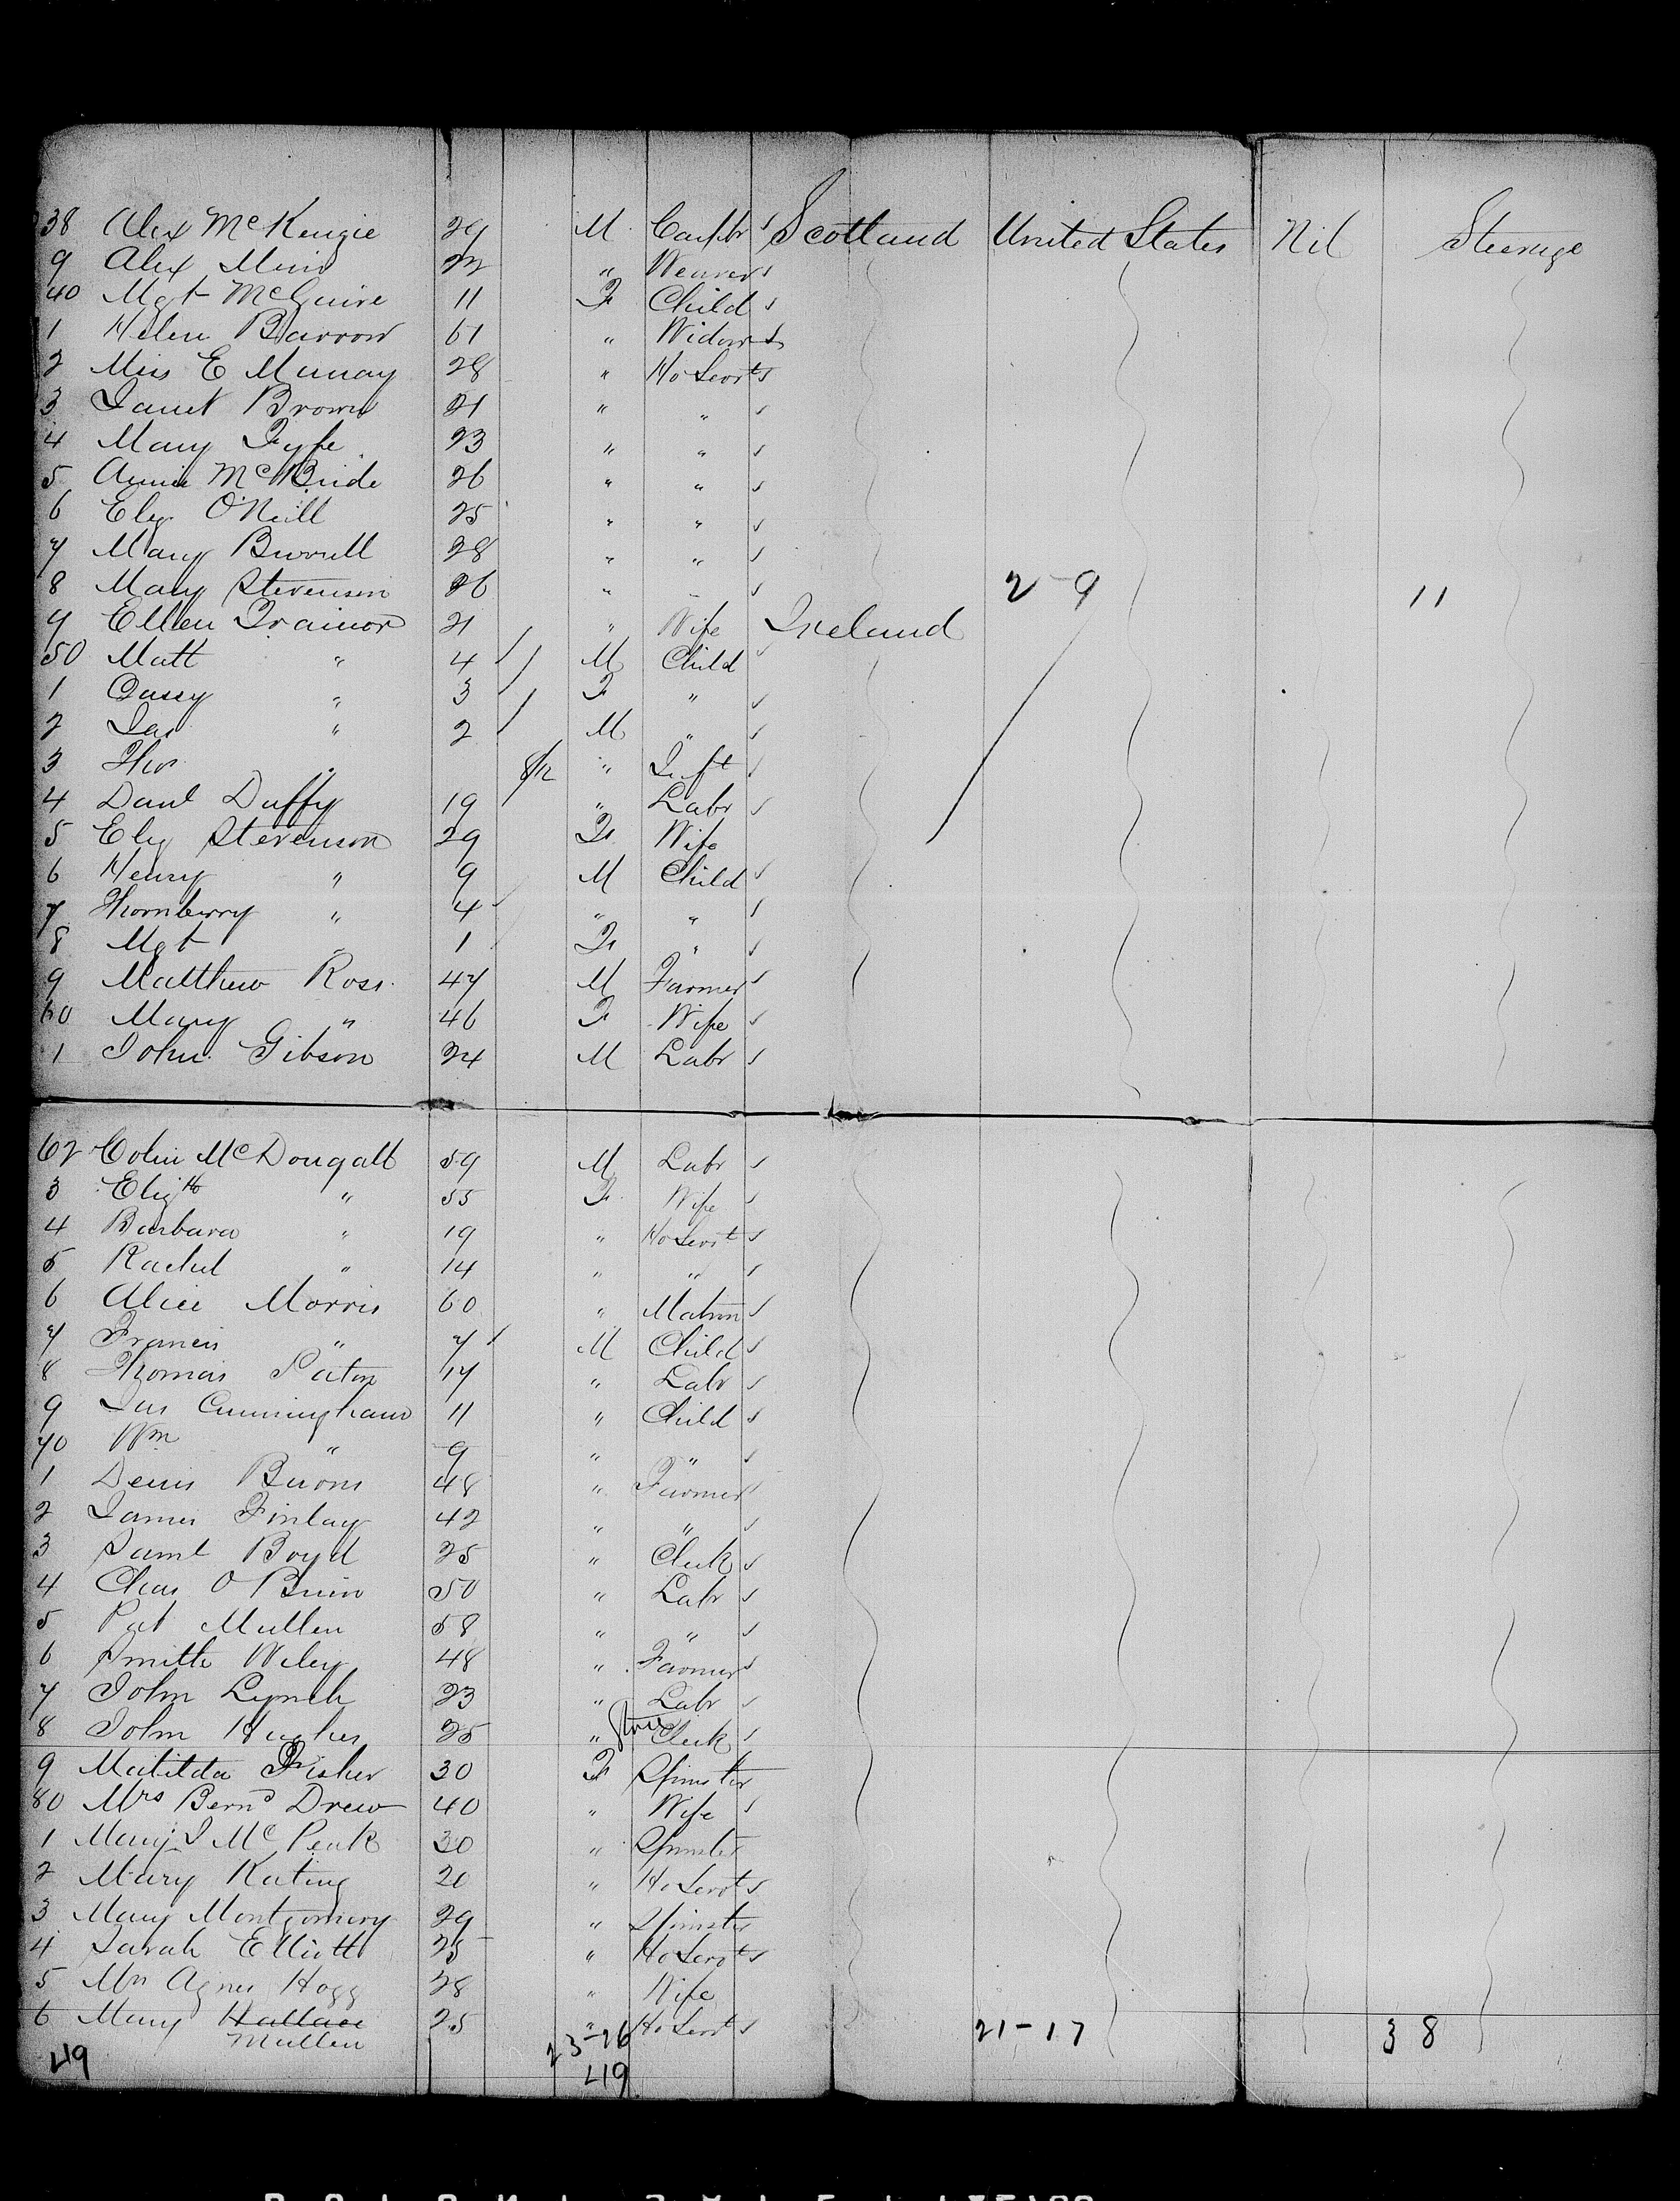 38 Alex McKenzie 29 M Carptr Scotland United States Nil Steerage
9 Alex Muir 22 " Weaver
40 Mgt McGuire 11 F Child
1 Helen Barrow 61 " Widow
2 Miss E Murray 28 " Ho Servt
3 Janet Brown 21 " "
4 Mary Fyfe 23 " "
5 Annie McBride 26 " "
6 Eliz O'Neill 25 " "
7 Mary Burrell 28 " "
8 Mary Stevenson 26 " " 2-9 11
9 Ellen Trainor 21 " Wife Ireland
50 Matt " 4 M Child
1 " 3 F "
2 Jas " 2 M "
3 Thos " " Inft
4 Danl Duffy 19 " Labr
5 Eliz Stevenson 29 F Wife
6 Henry " 9 M Child
7 Thornberry " 4 " "
8 Mgt " 1 F "
9 Matthew Ross 47 M Farmer
60 Mary " 46 F Wife
1 John Gibson 24 M Labr
62 Colin McDougall 59 M Labr
3 Elizth " 55 F Wife
4 Barbara " 19 " Ho Servt
5 Rachel " 14 " "
6 Alice Morris 60 " Matron
7 Francis " 7 M Child
8 Thomas Paton 17 " Labr
9 Jas Cunningham 11 " Child
70 Wm " 9 " "
1 Denis 48 " Farmer
2 James Finlay 42 " "
3 Saml Boyd 25 " Clerk
4 Chas O Brien 50 " Labr
5 Pat Mullen 58 " "
6 Smith Wiley 48 " Farmer
7 John Lynch 23 " Labr
8 John Hughes 25 " Clerk
9 Matilda Fisher 30 F Spinster
80 Mrs Bernd Drew 40 " Wife
1 Mary J McPeak 30 " Spinster
2 Mary Kating 20 " Ho Servt
3 Mary Montgomery 29 " Spinster
4 Sarah Elliott 25 " Ho Servt
5 Mrs Agnes Hogg 28 " Wife
6 Mary Wallace 25 " Ho Servt
Mullen 23-26 21-17 38
49 49